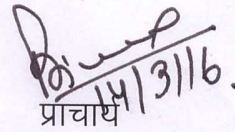 14/3/16
प्राचार्य